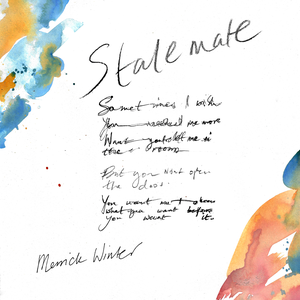 Stalemate
Sometimes I wish
You needed me more
Want you me in
the room
But you want open
the door.
You want me to know
what you want before
You want it.
Merrick Winter